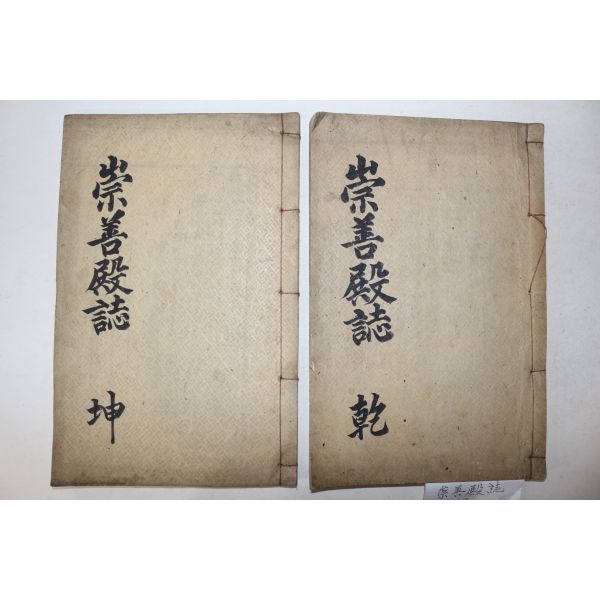 崇善殿誌 乾
崇善殿誌 坤
崇善殿誌